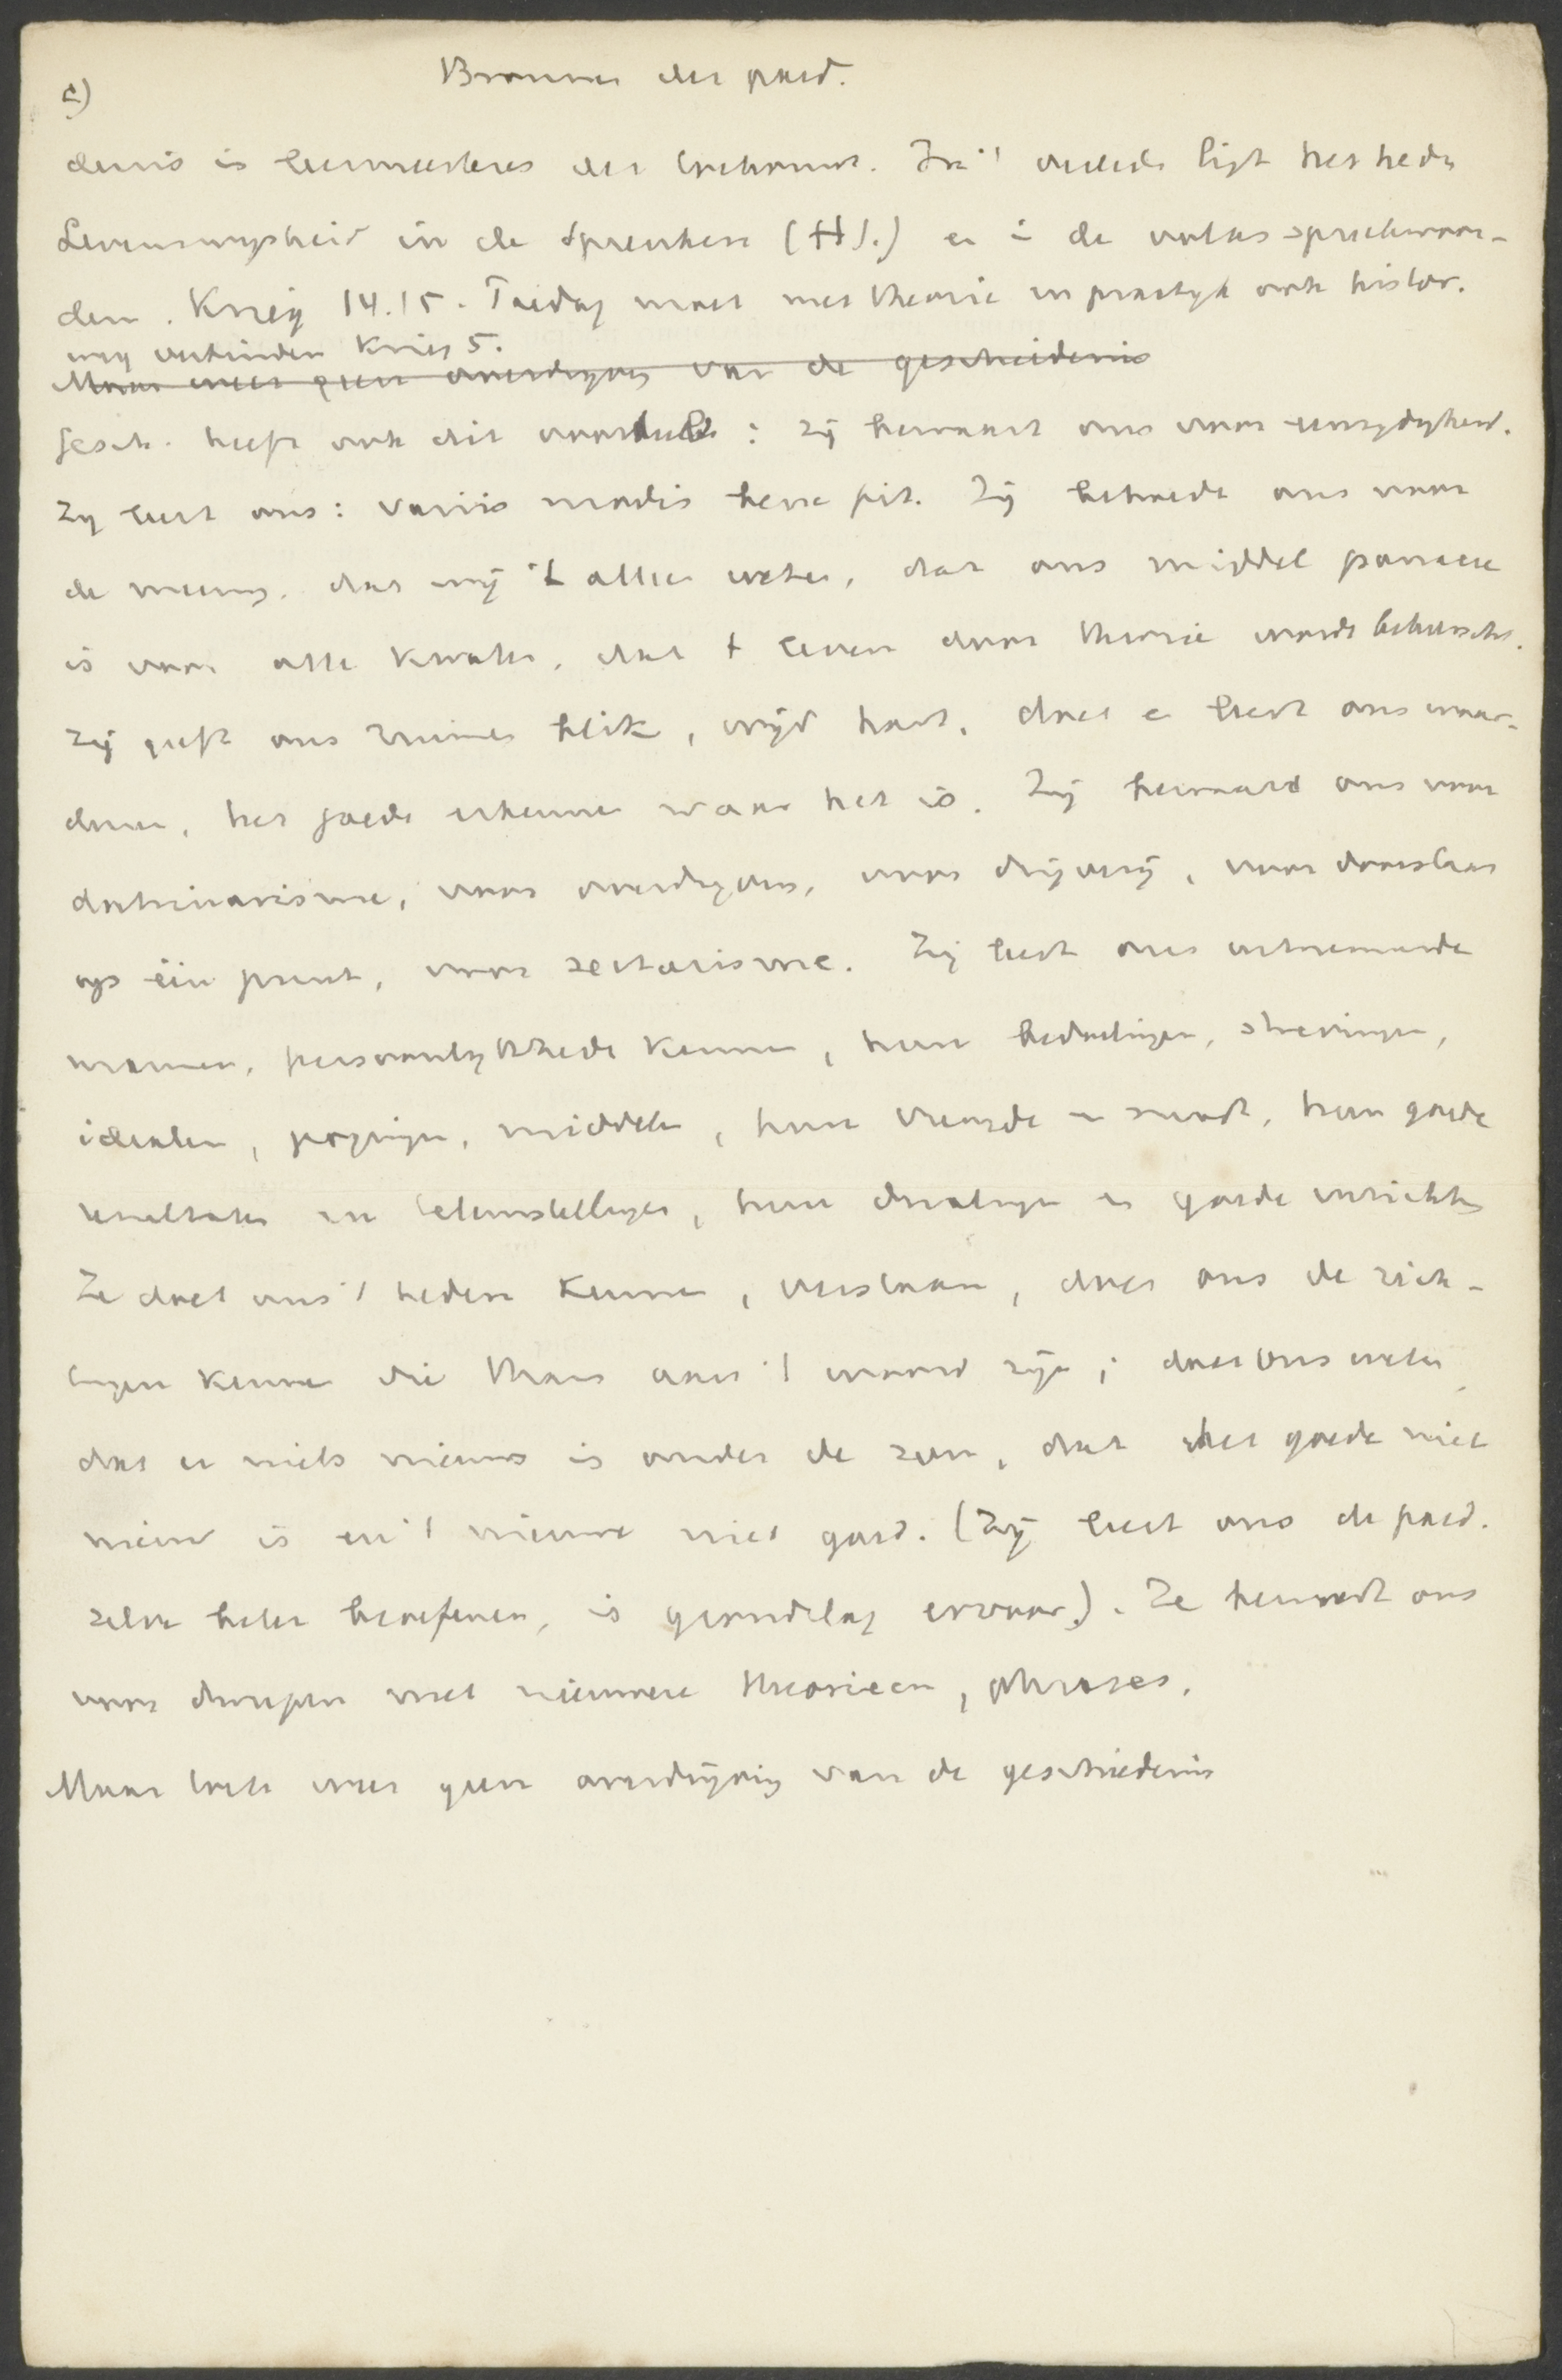 c)
Bronnen der paed.
denis is leermeesteres der toekomst. In 't verlede ligt het hede
Levenswijsheid in de Spreuken (H.S.) en in de volksspreekwoor-
den. Krieg 14.15. Paedag moet met theorie en praktijk ook histor.
weg verbinden Krieg 5.
Maar weer geen overdrijving van de geschiedenis
Gesch. heeft ook dit voordeel: zij bewaart ons voor eenzijdigheid.
Zij leert ons: variis modis bene fit. Zij behoedt ons voor
de mening, dat wij 't alleen weten, dat ons middel panacee
is voor alle kwalen, dat 't leven door theorie wordt beheerscht.
Zij geeft ons ruimen blik, wijd hart, doet en leert ons waar-
deren, het goede erkennen waar het is. Zij bewaard ons voor
doctrinarisme, voor overdrijving, voor drijverij, voor doorslaan
op één punt, voor sectarisme. Zij leert ons uitnemende
mannen, persoonlijkhede kennen, hun bedoelingen, strevingen,
idealen, pogingen, middelen, hun vreugde en smart, hun goede
resultaten en teleurstellingen, hun dwalingen en goede inzichten
Ze doet ons 't heden kennen, verstaan, doet ons de rich-
tingen kennen die thans aan 't woord zijn; doet ons weten
dat er niets nieuws is onder de zon, dat het goede niet
nieuw is en 't nieuwe niet goed. (Zij leert ons de paed.
zelve beter beoefenen, is grondslag ervoor). Ze bewaart ons
voor dwepen met nieuwere theorieen, phrases.
Maar toch weer geen overdrijving van de geschiedenis